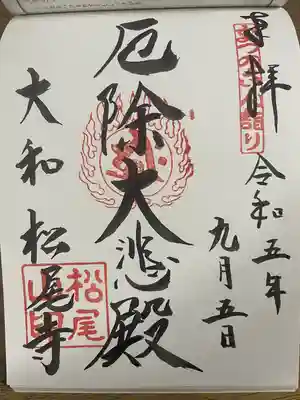 奉拝
令和五年
九月五日
厄除大悲殿
大和松尾寺
松尾